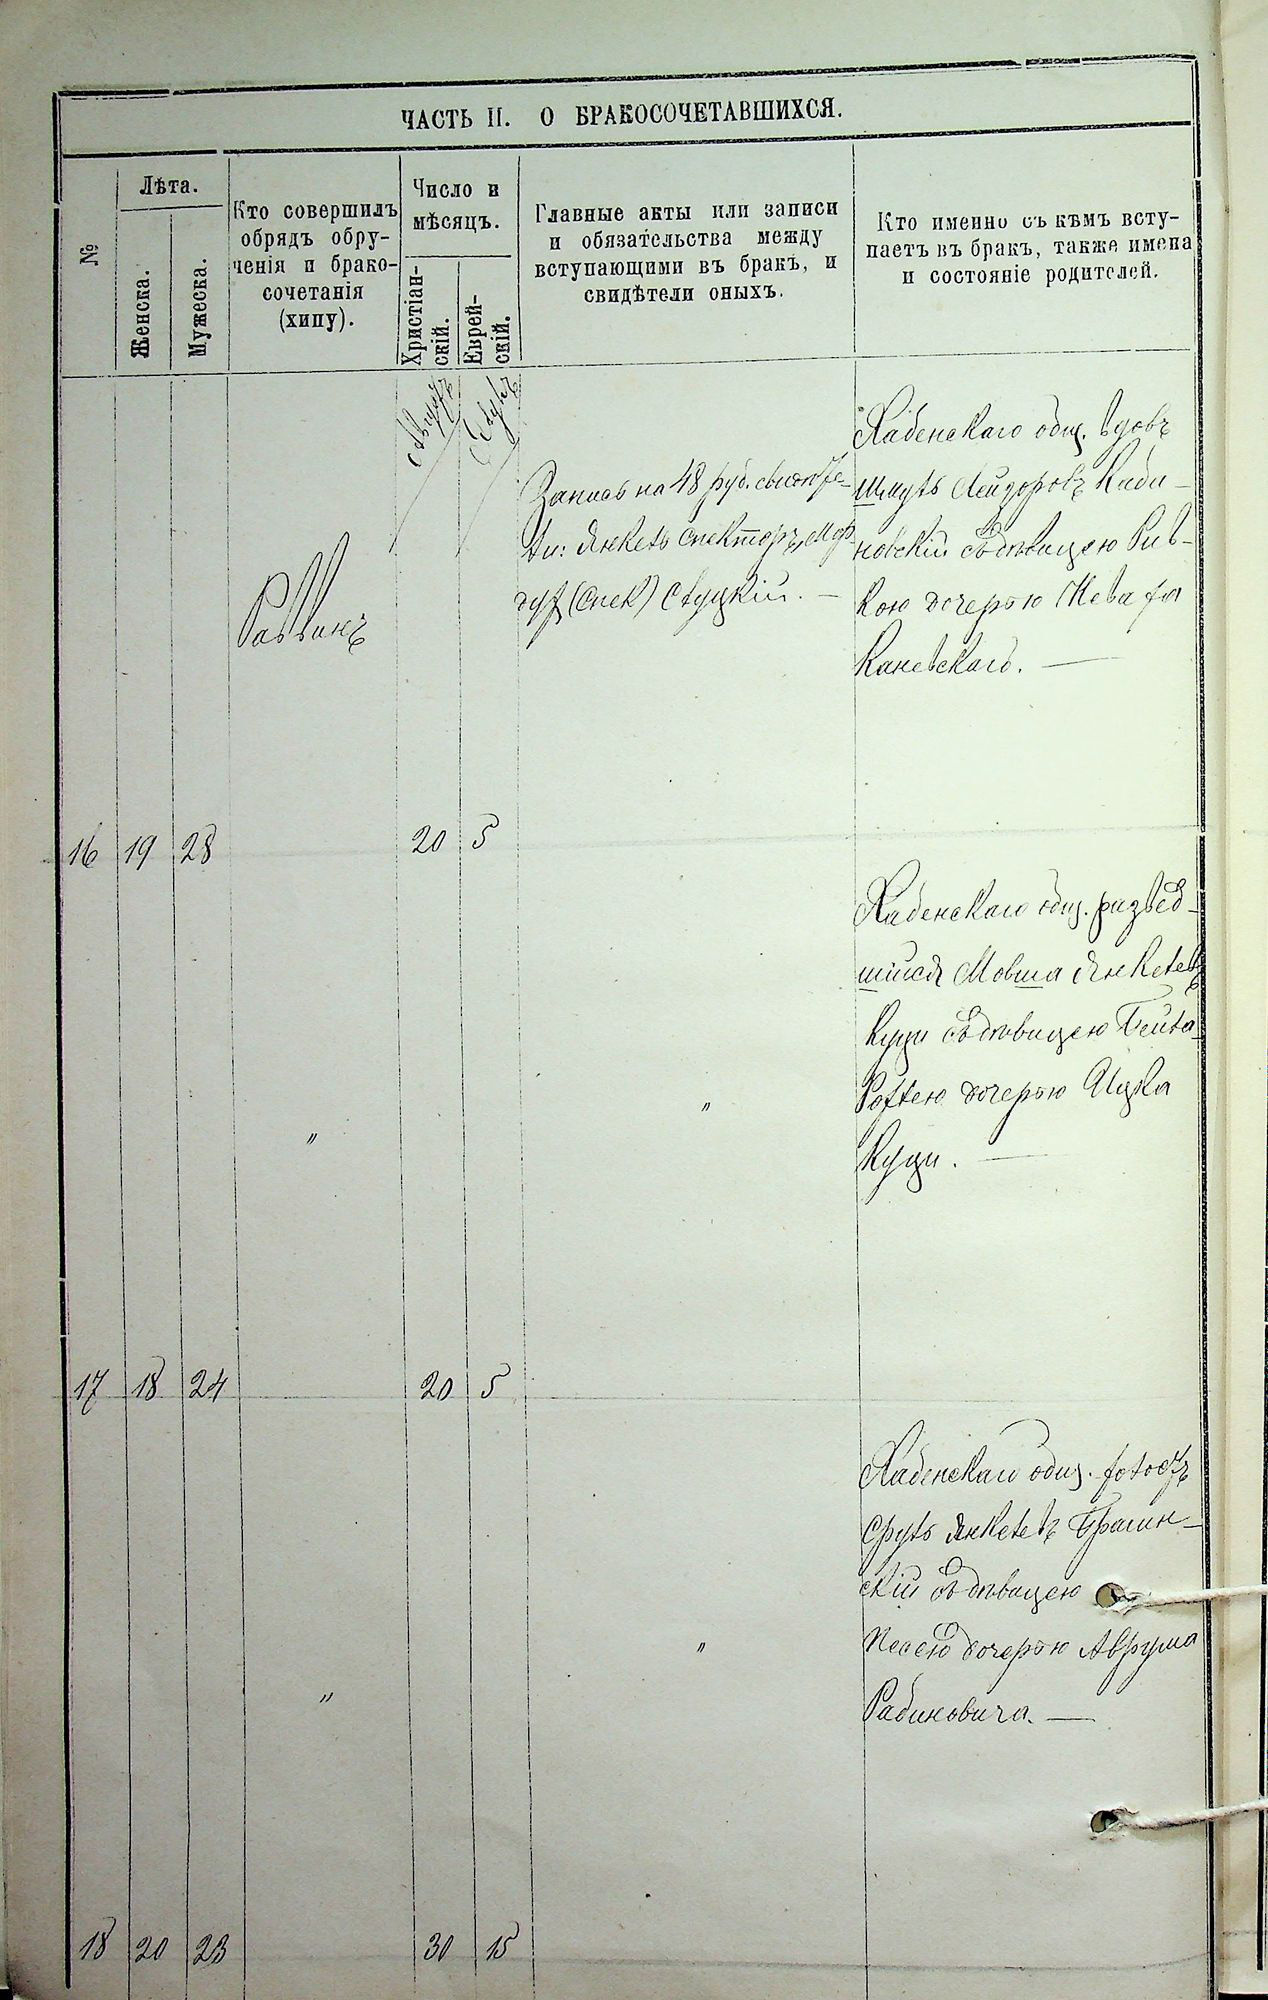 ЧАСТЬ II. О БРАКОСОЧЕТАВШИХСЯ.
№
Лѣта.
Женска.
Мужеска.
Кто совершилъ
обрядъ обру-
ченія и брако-
сочетанія
(хипу).
Число и
мѣсяцъ.
Христіан-
скій.
Еврей-
скій.
Главные акты или записи
и обязательства между
вступающими въ бракъ, и
свидѣтели оныхъ.
Кто именно съ кѣмъ всту-
паетъ въ бракъ, также имена
и состояніе родителей.
Августъ
16 19 28
Раввинъ
20 5
Запись на 48 руб. свидѣте-
ли: Янкель Спекторъ, Мор-
дух (Спек) Слуцкій. —
Хабенскаго общ. вдовъ
Шмуль Лейзоровъ
съ дѣвицею Рив-
кою дочерью
Каневскаго. —
17 18 24
"
20 5
"
Хабенскаго общ. развед-
шійся Мовша Янкелевъ
Куци съ дѣвицею Бейла
дочерью Ицка
Куци. —
18 20 23
"
30 15
"
Хабенскаго общ. холостъ
Сруль Янкелевъ Брагин-
скій съ дѣвицею
Песею дочерью Аврума
Рабиновича. —